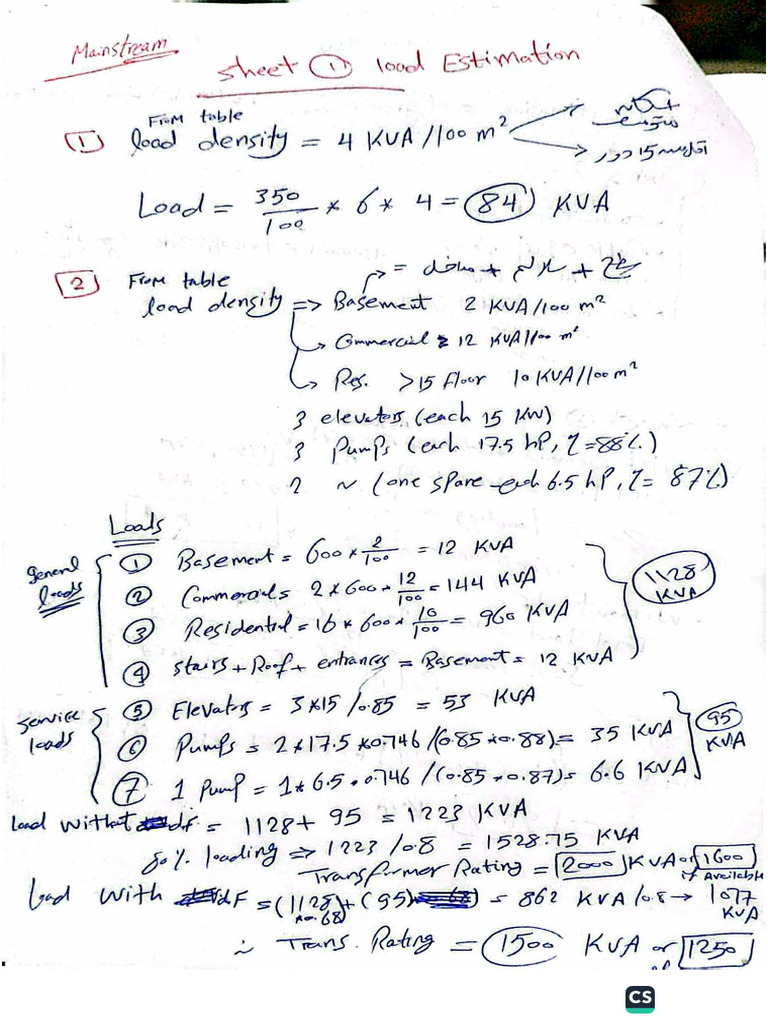 Mainstream
Sheet ① load Estimation
From table
1 load density = 4 KVA/100 m²
15 دور
Load = 350/100 * 6 * 4 = 84 KVA
2 From table
= مداخل + سلالم +
load density => Basement 2 KVA/100 m²
Commercial 12 KVA/100 m²
Res. >15 floor 10 KVA/100 m²
3 elevators (each 15 KW)
3 Pumps (each 17.5 hP, η=88%)
2 ~ (one spare each 6.5 hP, η= 87%)
Loads
general loads
① Basement = 600 * 2/100 = 12 KVA
② Commercial = 2 * 600 * 12/100 = 144 KVA
③ Residential = 16 * 600 * 10/100 = 960 KVA
④ Stairs + Roof + entrances = Basement = 12 KVA
1128 KVA
service loads
⑤ Elevators = 3*15/0.85 = 53 KVA
⑥ Pumps = 2*17.5*0.746/(0.85*0.88) = 35 KVA
⑦ 1 Pump = 1*6.5*0.746/(0.85*0.87) = 6.6 KVA
95 KVA
load without df = 1128 + 95 = 1223 KVA
80% loading => 1223/0.8 = 1528.75 KVA
Transformer Rating = 2000 KVA or 1600 if Available
load with dF = (1128*0.68)+(95) = 862 KVA/0.8 → 1077 KVA
∴ Trans. Rating = 1500 KVA or 1250
CS